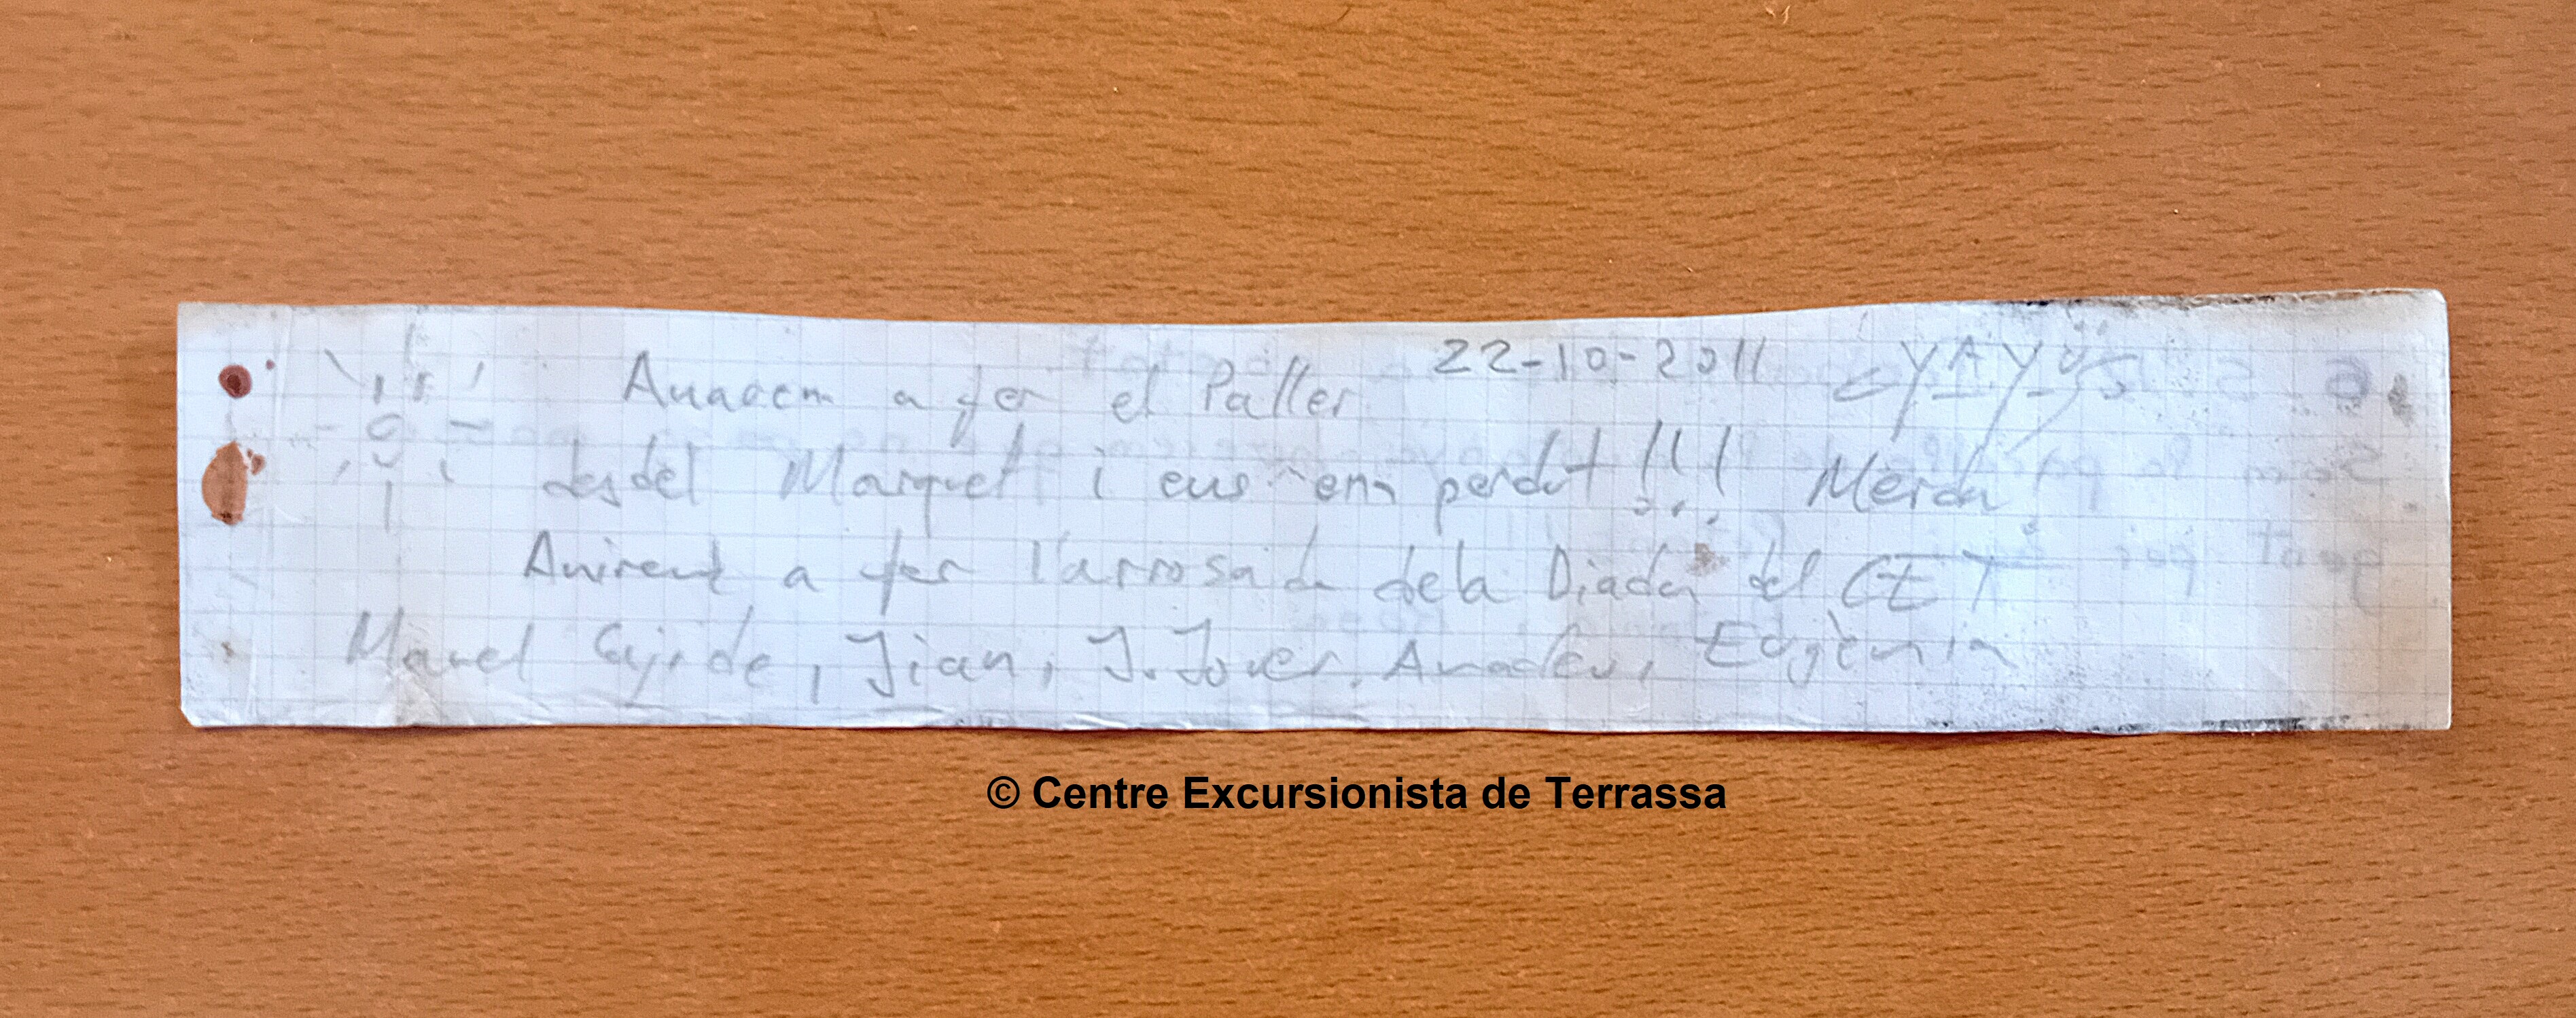 Anàvem a fer el Paller 22-10-2011
desdel Marquet i ens em perdut!!! Merda
Anirem a fer l'arrosada dela Diada del CET
Manel , Jian, J. Jover, Amadeu, Eugènia
© Centre Excursionista de Terrassa